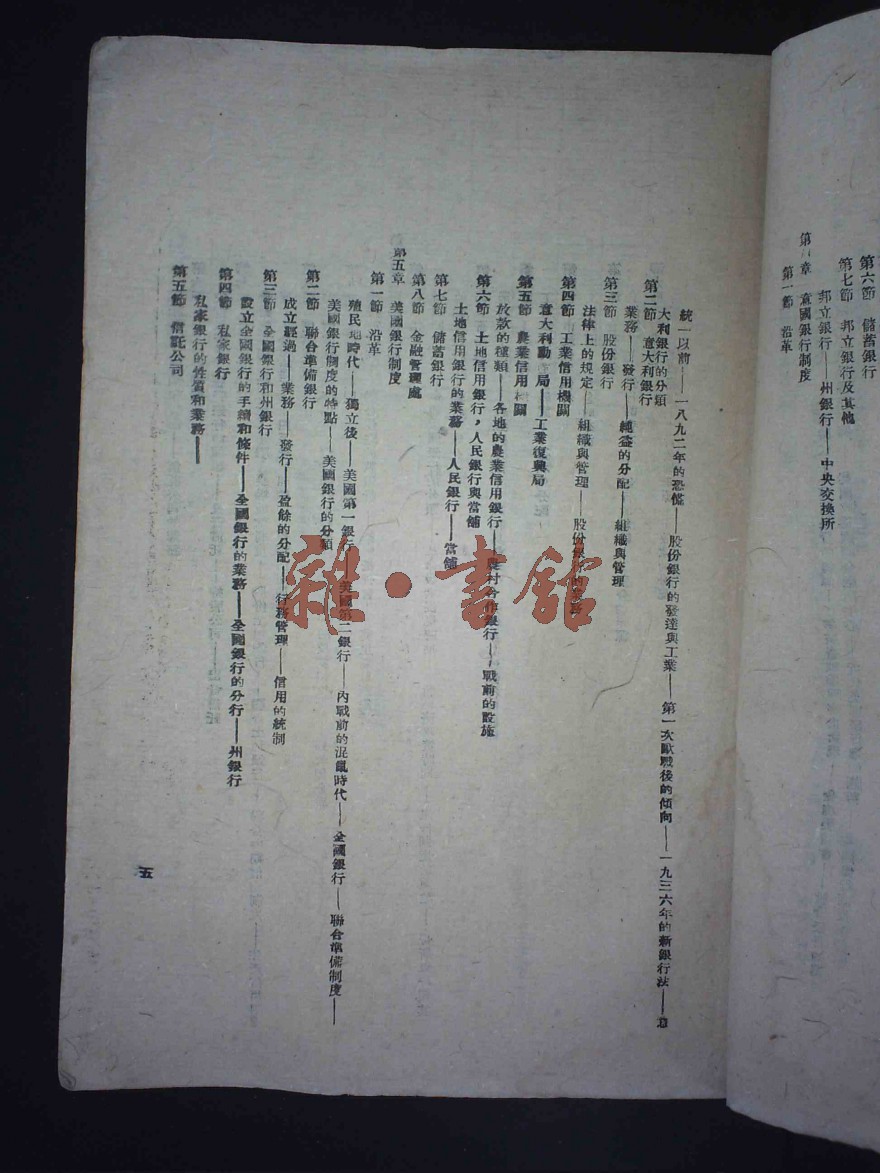 第六節 儲蓄銀行
第七節 邦立銀行及其他
邦立銀行——州銀行——中央交換所
章 意國銀行制度
第一節 沿革
統一以前——一八九二年的恐慌——股份銀行的發達與工業——第一次歐戰後的傾向——一九三六年的新銀行法——意
大利銀行的分類
第二節 意大利銀行
業務——發行——純益的分配——組織與管理
第三節 股份銀行
法律上的規定——組織與管理——股份銀行的業務
第四節 工業信用機關
意大利動 局——工業復興局
第五節 農業信用機關
放款的種類——各地的農業信用銀行——農村合作銀行——戰前的設施
第六節 土地信用銀行,人民銀行與當舖
土地信用銀行的業務——人民銀行——當舖
第七節 儲蓄銀行
第八節 金融管理處
第五章 美國銀行制度
第一節 沿革
殖民地時代——獨立後——美國第一銀行——美國第二銀行——內戰前的混亂時代——全國銀行——聯合準備制度——
美國銀行制度的特點——美國銀行的分類
第二節 聯合準備銀行
成立經過——業務——發行——盈餘的分配——行務管理——信用的統制
第三節 全國銀行和州銀行
設立全國銀行的手續和條件——全國銀行的業務——全國銀行的分行——州銀行
第四節 私家銀行
私家銀行的性質和業務——
第五節 信託公司
五
雜·書館